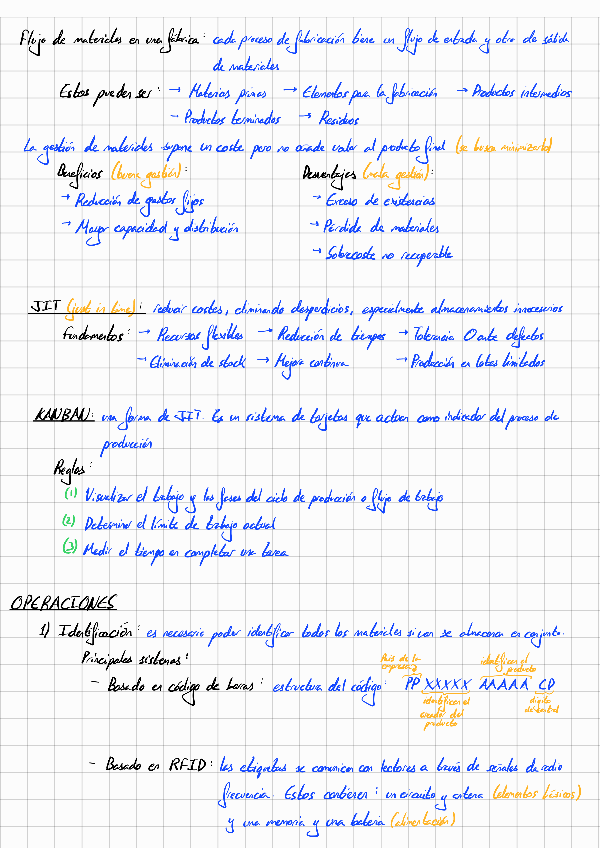 Flujo de materiales en una fábrica: cada proceso de fabricación tiene un flujo de entrada y otro de salida
de materiales
Estos pueden ser: → Materias primas → Elementos para la fabricación → Productos intermedios
→ Productos terminados → Residuos
La gestión de materiales supone un coste pero no añade valor al producto final (se busca minimizarlo)
Beneficios (buena gestión): Desventajas (mala gestión):
→ Reducción de gastos fijos → Exceso de existencias
→ Mayor capacidad y distribución → Pérdida de materiales
→ Sobrecoste no recuperable
JIT (just in time): reducir costes, eliminando desperdicios, especialmente almacenamientos innecesarios
Fundamentos: → Recursos flexibles → Reducción de tiempos → Tolerancia 0 ante defectos
→ Eliminación de stock → Mejora continua → Producción en lotes limitados
KANBAN: una forma de JIT. Es un sistema de tarjetas que actúan como indicador del proceso de
producción
Reglas:
(1) Visualizar el trabajo y las fases del ciclo de producción o flujo de trabajo
(2) Determinar el límite de trabajo actual
(3) Medir el tiempo en completar una tarea
OPERACIONES
1) Identificación: es necesario poder identificar todos los materiales si van se almacena en conjunto.
Principales sistemas:
País de la empresa identifican el producto
- Basado en código de barras: estructura del código: PP XXXXX AAAAA CD
identifican el creador del producto dígito de control
- Basado en RFID: las etiquetas se comunican con lectores a través de señales de radio
frecuencia. Estos contienen: un circuito y antena (elementos básicos)
y una memoria y una batería (alimentación)